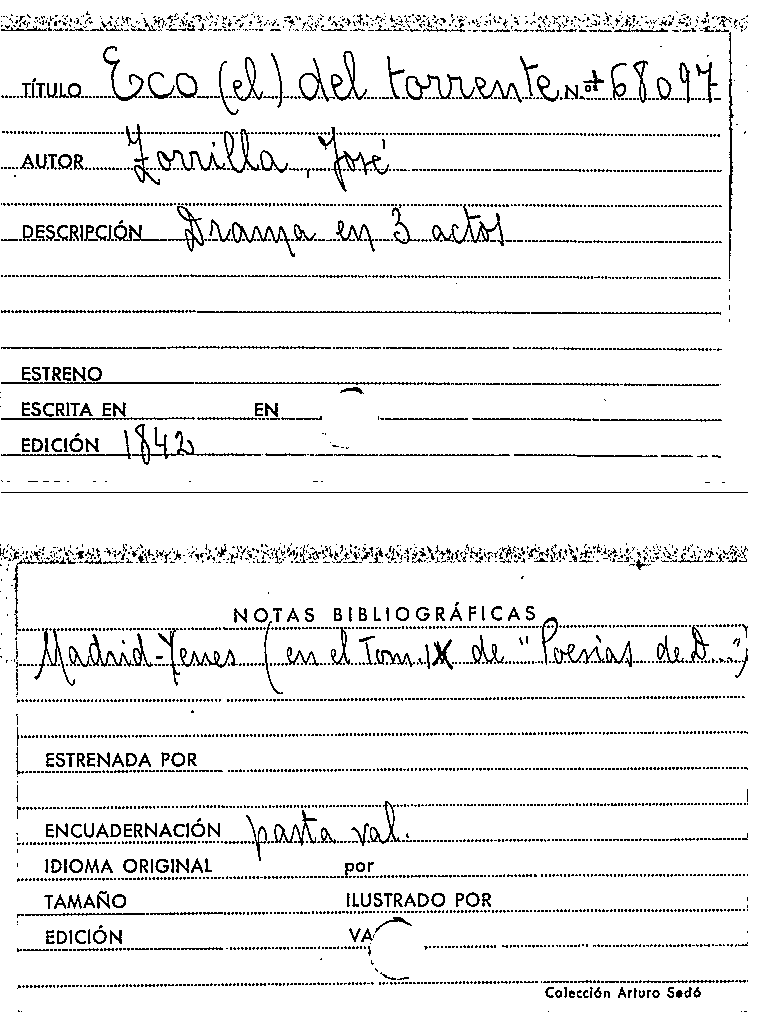 TÍTULO Eco (el) del torrente N.º 68097
AUTOR Zorrilla, José
DESCRIPCIÓN Drama en 3 actos
ESTRENO
ESCRITA EN EN
EDICIÓN 1842
NOTAS BIBLIOGRÁFICAS
Madrid-Yenes (en el Tom. IX de "Poesías de D...")
ESTRENADA POR
ENCUADERNACIÓN pasta val.
IDIOMA ORIGINAL por
TAMAÑO ILUSTRADO POR
EDICIÓN VA
Colección Arturo Sedó